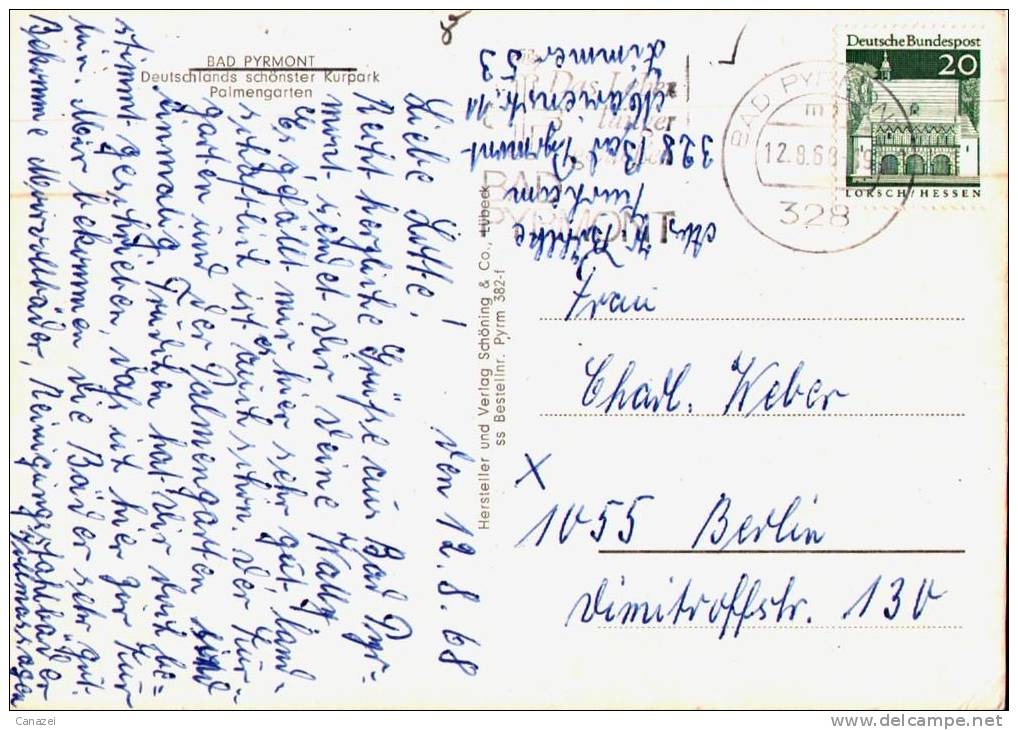 BAD PYRMONT
Deutschlands schönster Kurpark
Palmengarten
den 12.8.68
Liebe Lotte!
Recht herzliche Grüsse aus Bad Pyr-
mont sendet dir deine Wally
Es gefällt mir hier sehr gut, land-
schaftlich ist es auch schön. der Kur-
garten und der Palmengarten sind
einmalig. Trudchen hat dir doch be=
stimmt geschrieben, daß ich hier zur Kur
bin. Mir bekommen die Bäder sehr gut.
Bekomme Moorvollbäder, Kneipp
Hersteller und Verlag Schöning & Co., Lübeck
ss Bestellnr. Pyrm 382-f
Abs.
328 Bad Pyrmont
Marienstr. 11
Zimmer 53
Das Jahr
BAD
PYRMONT
BAD PYRMONT
m
12.8.68
328
Deutsche Bundespost
20
LORSCH/HESSEN
Frau
Charl. Weber
X
1055 Berlin
Dimitroffstr. 130
Canazei
www.delcampe.net